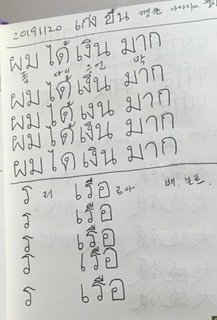 20191120 เก่ง ขึ้น
ผม ได้ เงิน มาก
ผม ได้ เงิน มาก
ผม ได้ เงน มาก
ผม ได้ เงิน มาก
ผม ได เงิน มาก
ร 러 เรือ 르아 배, 보트.
ร เรือ
ร เรือ
ร เรือ
ร เรือ